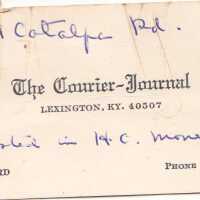 Catalpa Rd.
The Courier-Journal
LEXINGTON, KY. 40507
in H.C.
PHONE